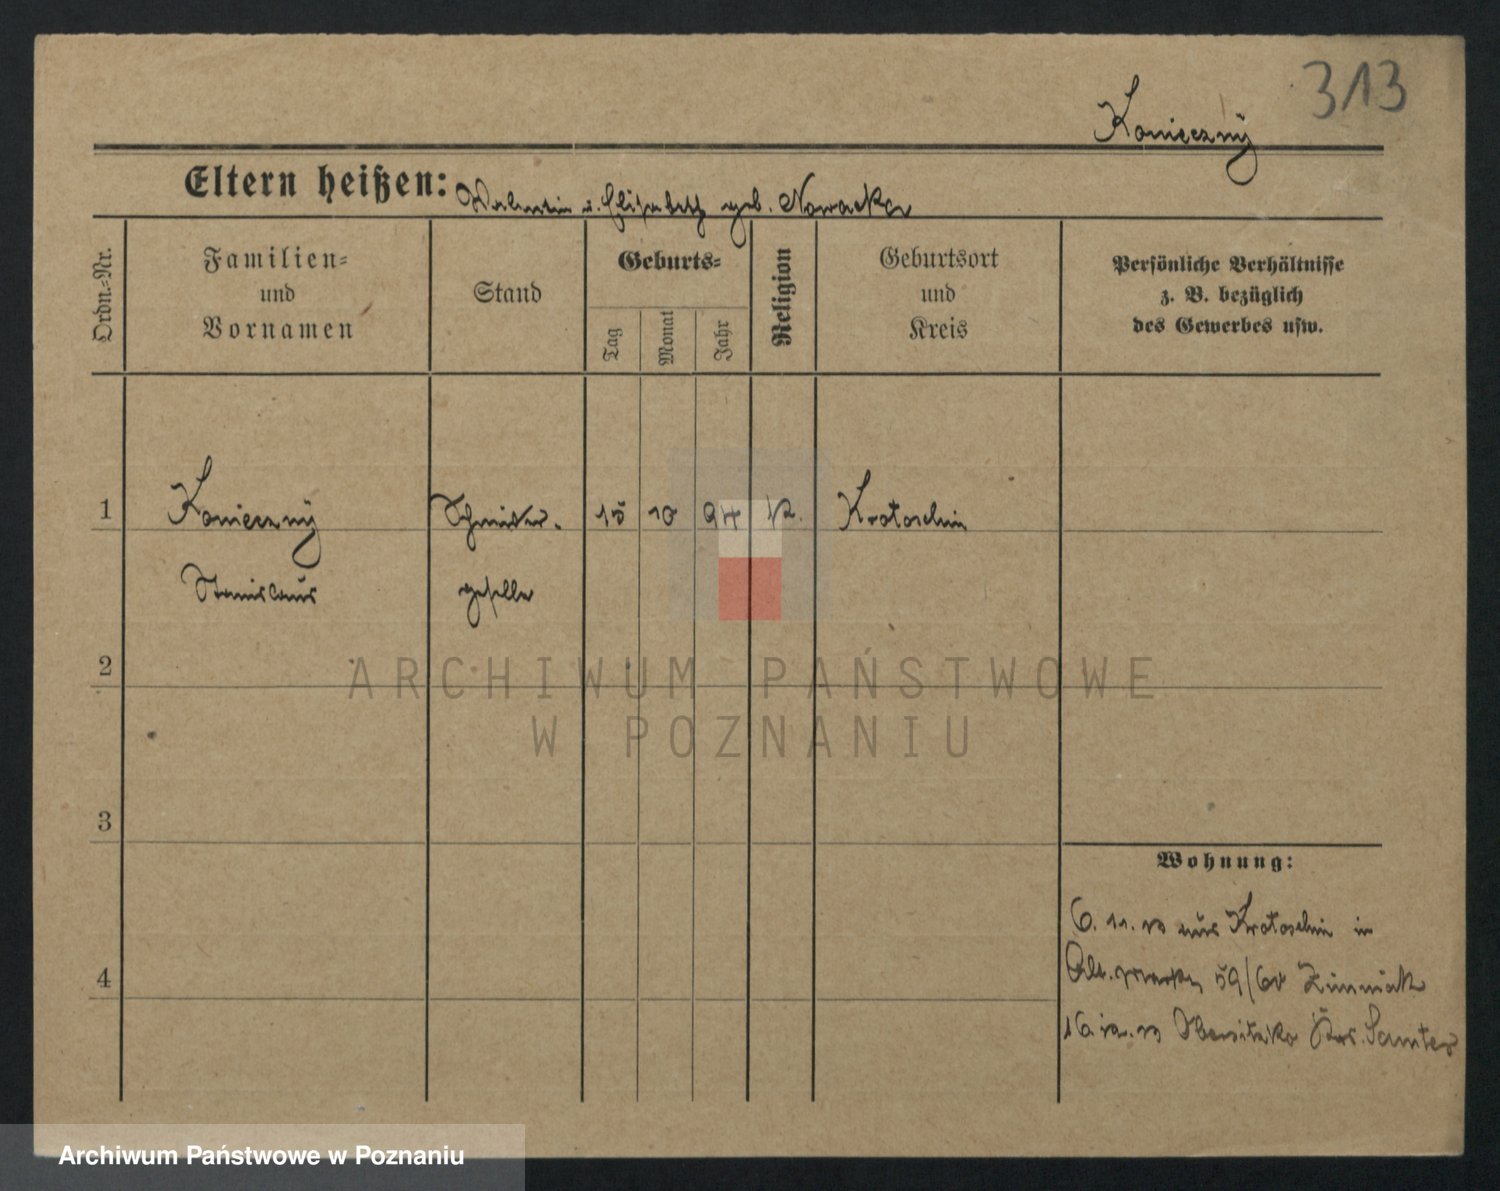 313
Konieczny
Eltern heißen: Valentin u. Elisabeth geb. Nowacka
Ordn.-Nr.
Familien-
und
Vornamen
Stand
Geburts-
Tag
Monat
Jahr
Religion
Geburtsort
und
Kreis
Persönliche Verhältnisse
z. B. bezüglich
des Gewerbes usw.
1 Konieczny Schneider- 15 10 94 k. Krotoschin
Stanislaus geselle
2
3
4
Wohnung:
6. 11. 13 aus Krotoschin in
59/60 Zimniak
16. 12. 13 Obersitzko Krs. Samter
ARCHIWUM PAŃSTWOWE
W POZNANIU
Archiwum Państwowe w Poznaniu